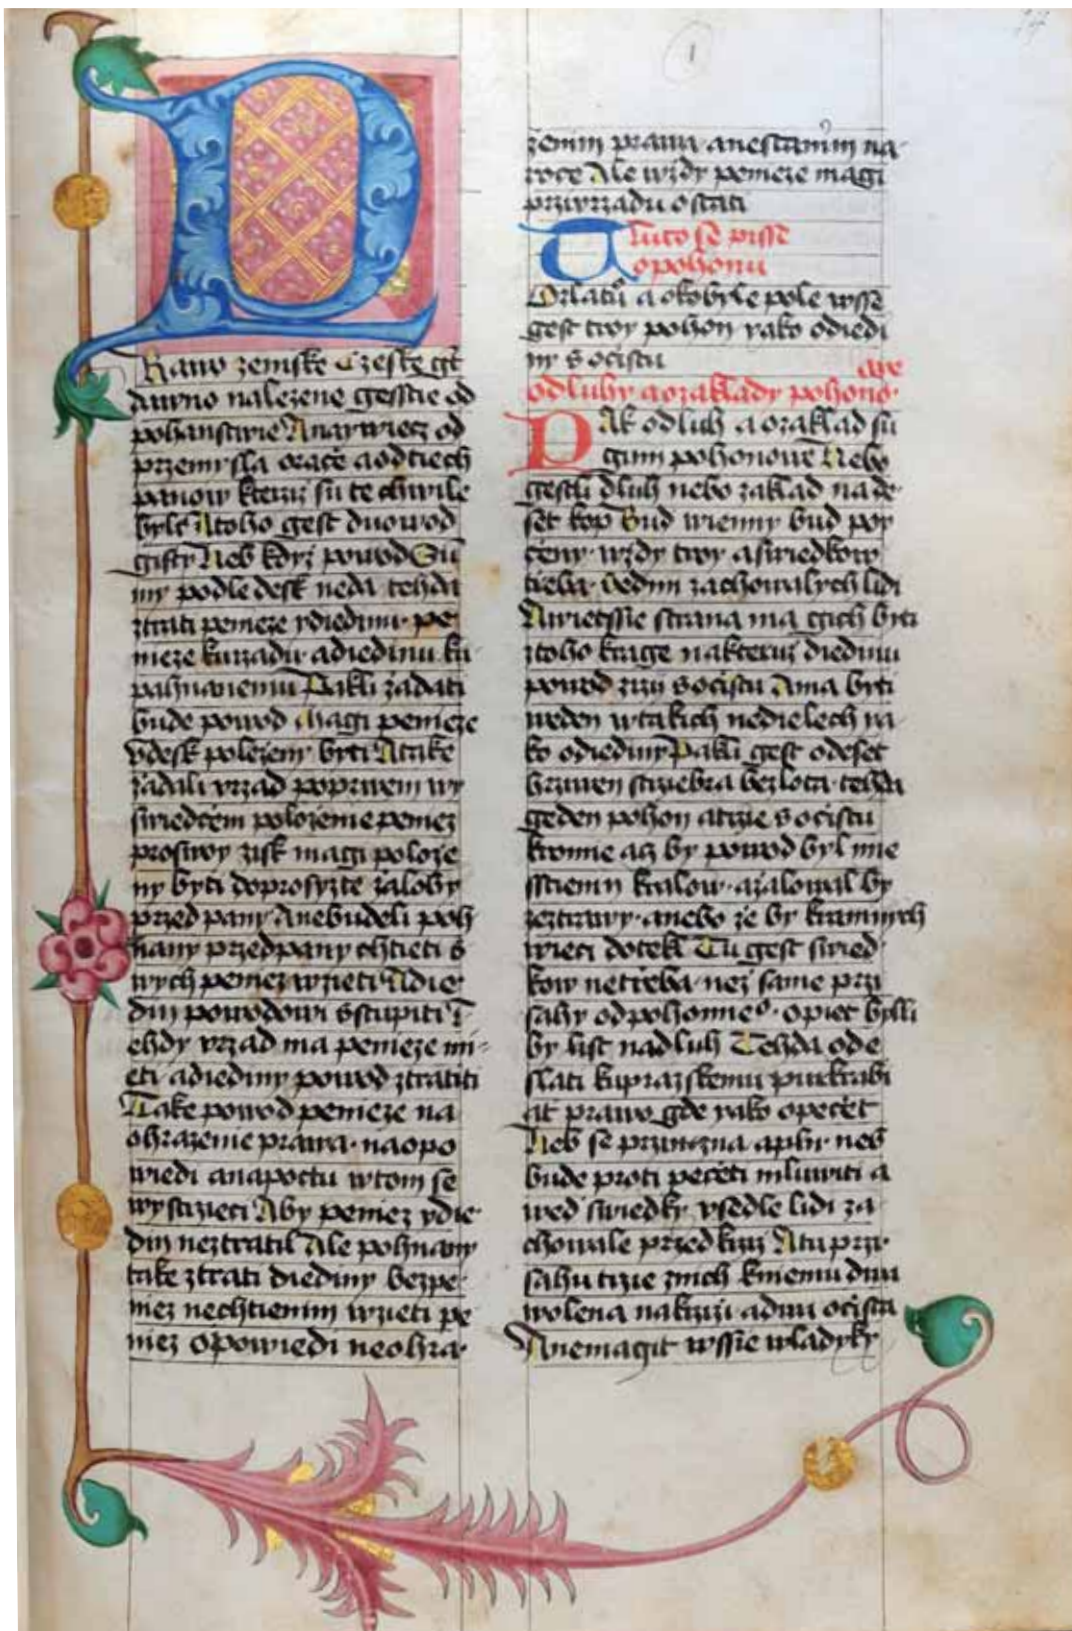 1
P
Rawo zemske Czeske gt
dawno nalezene gesstie od
pohanstwie A naywiecz od
przemysla oracze a od tiech
panow kterziz su te chwile
byli A toho gest duowod
gisty Neb kdyz powod Sum
my podle desk neda tehda
ztrati penieze y diedinu pe
nieze k urzadu a diedinu ku
pohnanemu Pakli zadati
bude powod magi penieze
v desk polozeny byti A take
zadali vrzad poprwem wy
swiedczem polozenie peniez
pro swoy zisk magi poloze
ny byti do prosyzte zaloby
przed pany A nebudeli poh
nany przed pany chtieti s
wych peniez wzieti A die
din powodowi sstupiti T
ehdy vrzad ma penieze mi
eti a diediny powod ztratiti
Take powod penieze na
ohrazenie prawa na opo
wiedi a na poctu w tom se
wystrzieci Aby peniez y die
din neztratil Ale pohnany
take ztrati diediny bez pe
niez nechtienim wzieti pe
niez opowiedi neohra
zenim prawa a nestanim na
rocze Ale wzdy penieze magi
przi vrzadu ostati
Tuto se pisse
o pohonu
O zlatu a o kobyle pole wsse
gest troy pohon yako o diedi
ny s ocistu
o dluhy a o zaklady pohono
PAk o dluh a o zaklad su
gim pohonowe Nebo
gestli dluh nebo zaklad na de
set kop Bud wienny bud por
czeny wzdy troy a swiedkow
trzeba sedmi zachowalych lidi
A wietssie strana ma gich byti
z toho krage na kteruz diedinu
powod zizu s ocistu A ma byti
weden w takich nedielech ya
ko o diediny Pakli gest o deset
hrziwen strziebra bez lota tehda
geden pohon a trzie s ocistu
kromie acz by powod byl mie
sstienin kralow a zaloval by
z eztrawy anebo ze by kramnych
wieci dotekl Tu gest swied
kow netrzeba nez same przi
sahy odpohonneo opiet bylli
by list na dluh Tehda ode
slati k uprazskemu purkrabi
at prawo gde yako o peczet
Neb se przizna a plni neb
bude proti peczeti mluwiti a
wed swiedky vsedle lidi za
chowale przed krziz A tu przi
sahu trzie z nich k niemu dwa
wolena na krziz a dwu ocista
A nemagit wssie wladyky